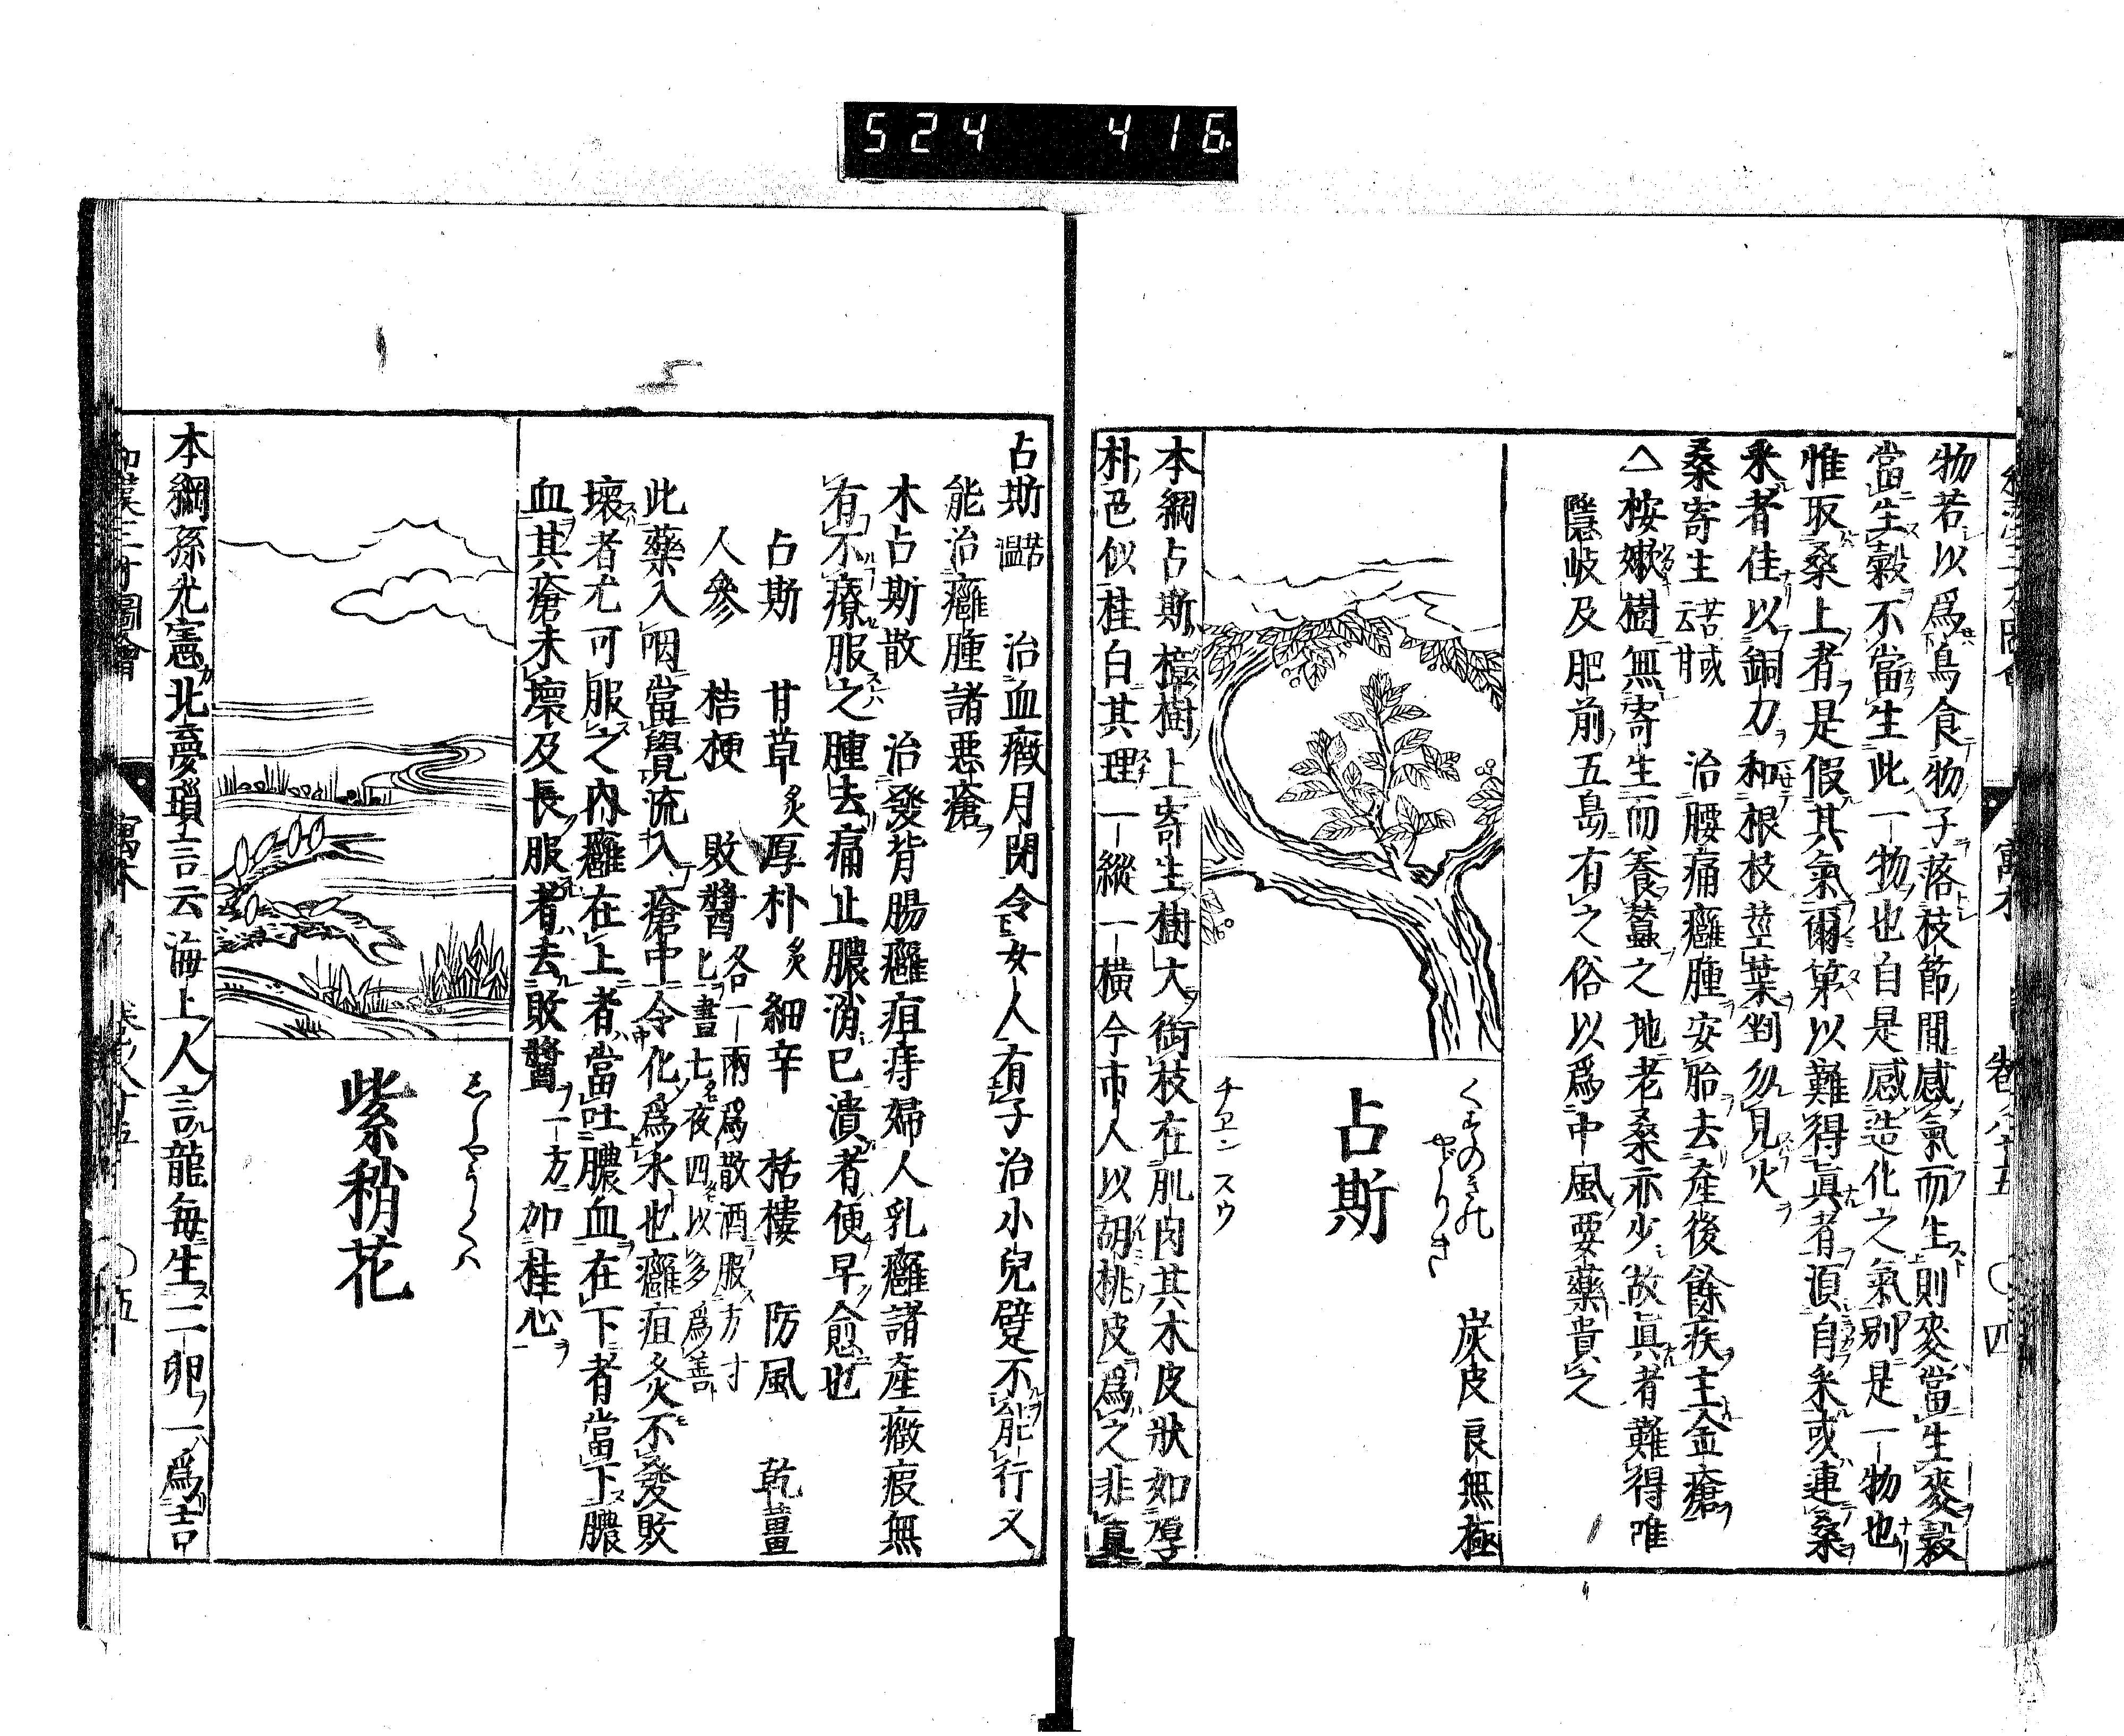 524 416
物若以爲鳥食物子落枝節閒感氣而生則麥當生麥穀
當生穀不當生此一物也自是感造化之氣別是一物也
惟取桑上者是假其氣爾第以難得眞者須自采或連桑
采者佳以銅刀和根枝莖葉剉勿見火
桑寄生 治腰痛癰腫安胎去產後餘疾主金瘡
△桉嫩樹無寄生而養蠶之地老桑亦少故眞者難得唯
隱岐及肥前五島有之俗以爲中風要藥貴之
くすのきの
やどりき
炭皮 良無極
占斯
チヱン スウ
本綱占斯樟樹上寄生樹大銜枝在肌肉其木皮狀如厚
朴色似桂白其理一縱一橫今市人以胡桃皮爲之非眞
寓木 卷八十五 〇四
占斯 苦溫 治血癥月閉令女人有子治小兒躄不能行又
能治癰腫諸惡瘡
木占斯散 治發背腸癰疽痔婦人乳癰諸產癥瘕無
有不療服之腫去痛止膿消已潰者便早愈也
占斯 甘草炙 厚朴炙 細辛 栝樓 防風 乾薑
人參 桔梗 敗醬 各一兩爲散酒服方寸
匕晝七夜四以多爲善
此藥入咽當覺流入瘡中令化爲水也癰疽灸不發敗
壞者尤可服之內癰在上者當吐膿血在下者當下膿
血其瘡未壞及長服者去敗醬一方加桂心
ししやうくハ
紫稍花
本綱孫光憲北夢瑣言云海上人言龍每生二卵一爲吉
和漢三才圖會 寓木 卷八十五 〇五